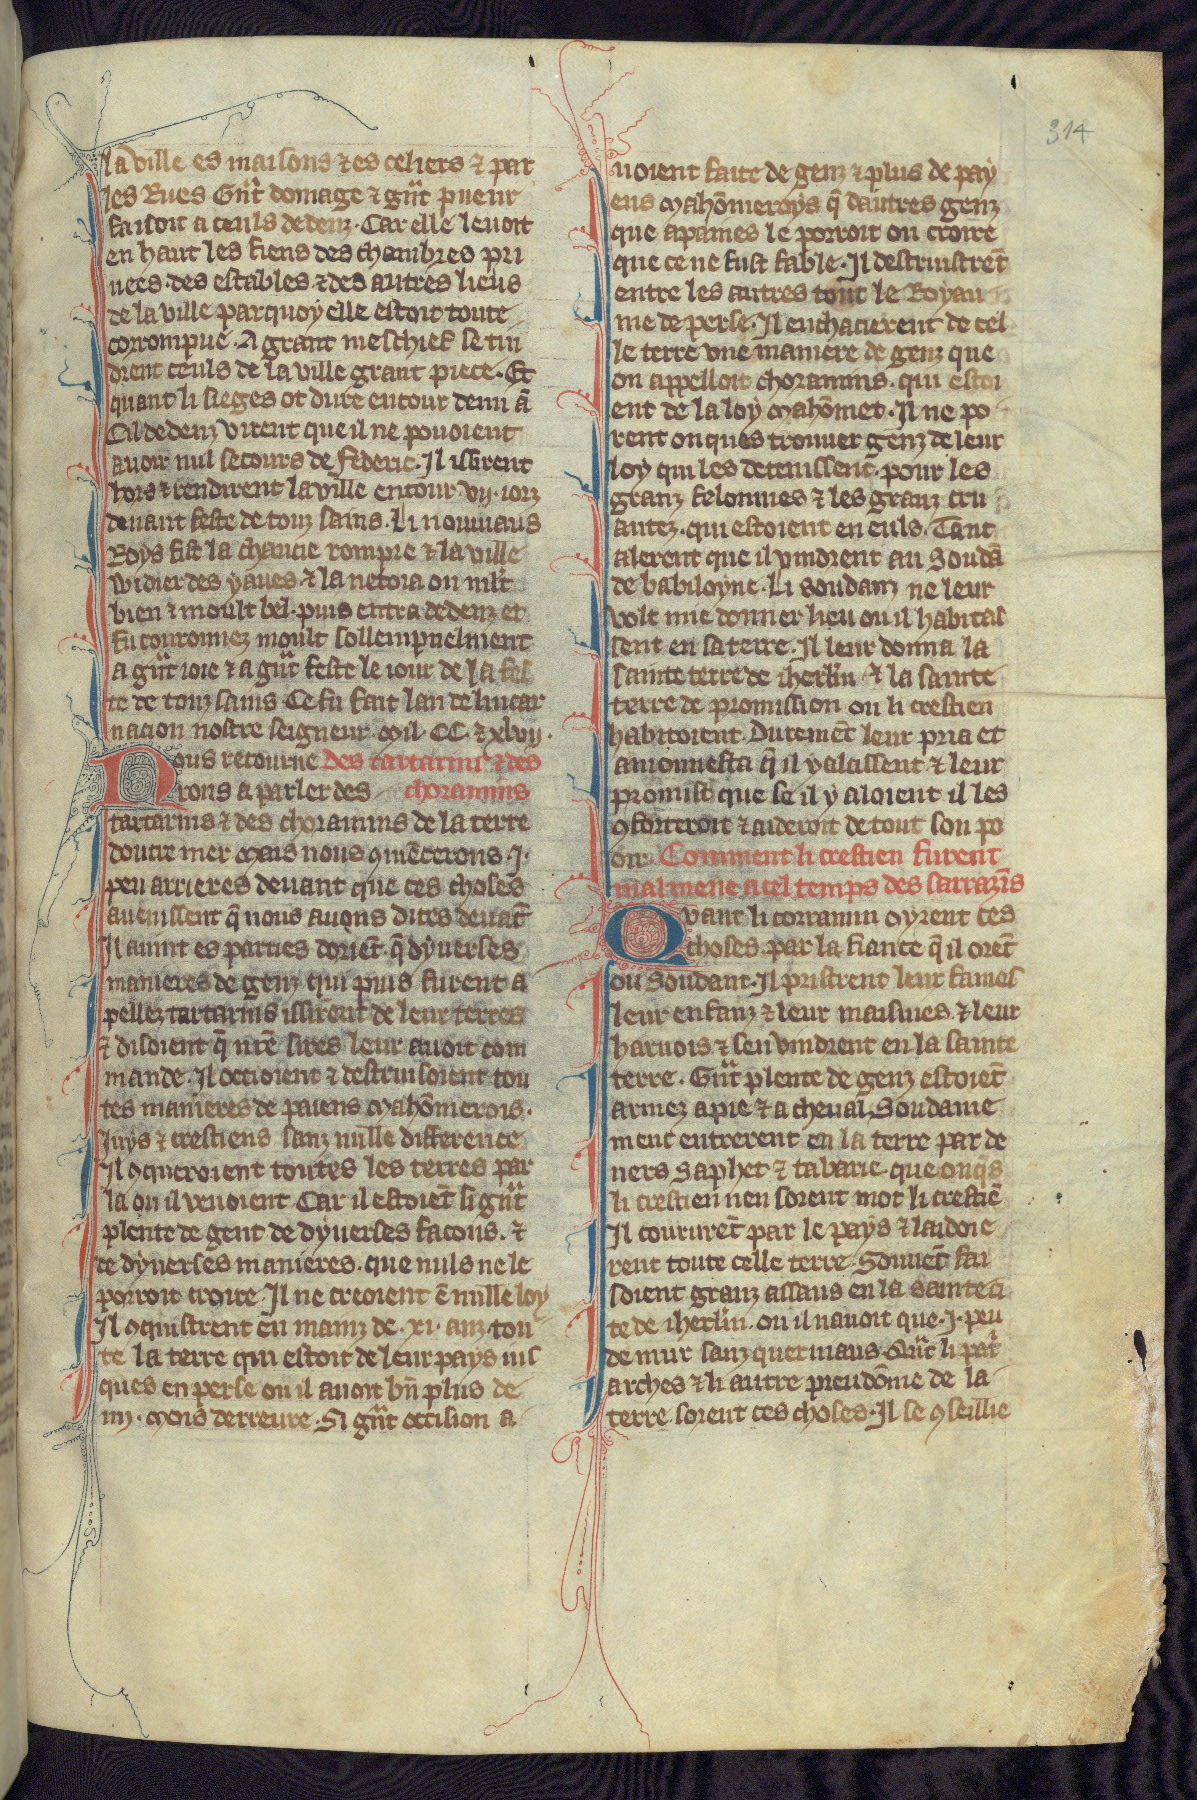 314
la ville es maisons ⁊ es celiers ⁊ par
les Rues Gñt domage ⁊ gñt pueur
faisoit a ceuls dedenz. Car elle levoit
en haut les fiens des chambres pri
uees. des estables ⁊ des autres lieus
de la ville par quoy elle estoit toute
corrompue. A grant meschief se tin
drent ceuls de la ville grant piece. Et
quant li sieges ot dure entour demi ā
Cil dedenz virent que il ne pouoient
auoir nul secours de federic. Il issirent
hors ⁊ rendirent la ville entour .vij. iorz
deuant feste de touz sains. Li nouuiaus
Roys fist la chaucie rompre ⁊ la ville
widier des yaues. ⁊ la netoia on mlt
bien ⁊ moult bel. puis entra dedenz et
fu couronnez moult sollempnelment
a gñt ioie ⁊ a gñt feste le iour de la fes
te de touz sains. Ce fu fait lan de lincar
nacion nostre seigneur. Mil. CC. ⁊ xlvij.
Nous retourne Des tartarins ⁊ des
rons a parler des choramins
tartarins ⁊ des choramins de la terre
doutre mer Mais nous ꝯmēcerons .J.
peu arrieres deuant que ces choses
auenissent q̄ nous auons dites deuāt
Il auint es parties doriēt. q̄ dyuerses
manieres de genz qui puis furent a
pellez tartarins issirent de leur terres
⁊ disoient q̄ nr̄e sires leur auoit com
mande. Il occioient ⁊ destruisoient tou
tes manieres de paiens Mahōmerois.
Juys ⁊ crestiens sanz nulle difference
Il ꝯqueroient toutes les terres par
la ou il venoient Car il estoiēt si gñt
plente de gent de dyuerses facons. ⁊
de dyuerses manieres. que nuls ne le
porroit croire. Il ne creoient ē nulle loy
Il ꝯquistrent en mainz de .xi. anz. tou
te la terre qui estoit de leur pays ius
ques en perse ou il auoit bn̄ plus de
iiij. Mois derreure. Si gñt occision a
uoient faite de genz ⁊ plus de pay
ens Mahōmeroys q̄ dautres genz
que a paines le porroit on croire
que ce ne fust fable. Il destruistrēt
entre les autres tout le Royau
me de perse. Il enchacierent de cel
le terre vne maniere de genz que
on appelloit choramins. qui estoi
ent de la loy Mahōmet. Il ne po
rent onques trouuer genz de leur
loy qui les detenissent. pour les
granz felonnies ⁊ les granz cru
autez. qui estoient en euls. Tant
alerent que il vindrent au Soudā
de babiloyne. Li soudanz ne leur
volt mie donner lieu ou il habitas
sent en sa terre. Il leur donna la
sainte terre de iherlm̄ ⁊ la sainte
terre de promission ou li crestien
habitoient. Duremēt leur pria et
amonnesta q̄ il y alassent ⁊ leur
promist que se il y aloient il les
ꝯforteroit ⁊ aideroit de tout son po
oir. Comment li crestien furent
malmene a cel temps des sarrazīs
Quant li corramin oyrent ces
choses. par la fiance q̄ il orēt
ou Soudant. Il pristrent leur fames
leur enfanz ⁊ leur maisnies. ⁊ leur
harnois ⁊ sen vindrent en la sainte
terre. Gñt plente de genz estoiēt
armez a pie ⁊ a cheual. Soudaine
ment entrerent en la terre par de
uers Saphet ⁊ tabarie. que onqs
li crestien nen sorent mot li crestiē
Il coururēt par le pays ⁊ laidoie
rent toute celle terre. Souuēt fai
soient granz assaus en la sainte ci
te de iherlm̄. ou il nauoit que .J. peu
de mur sanz quernaus. Qñt li pat
arches ⁊ li autre preudōme de la
terre sorent ces choses. Il se ꝯseillie